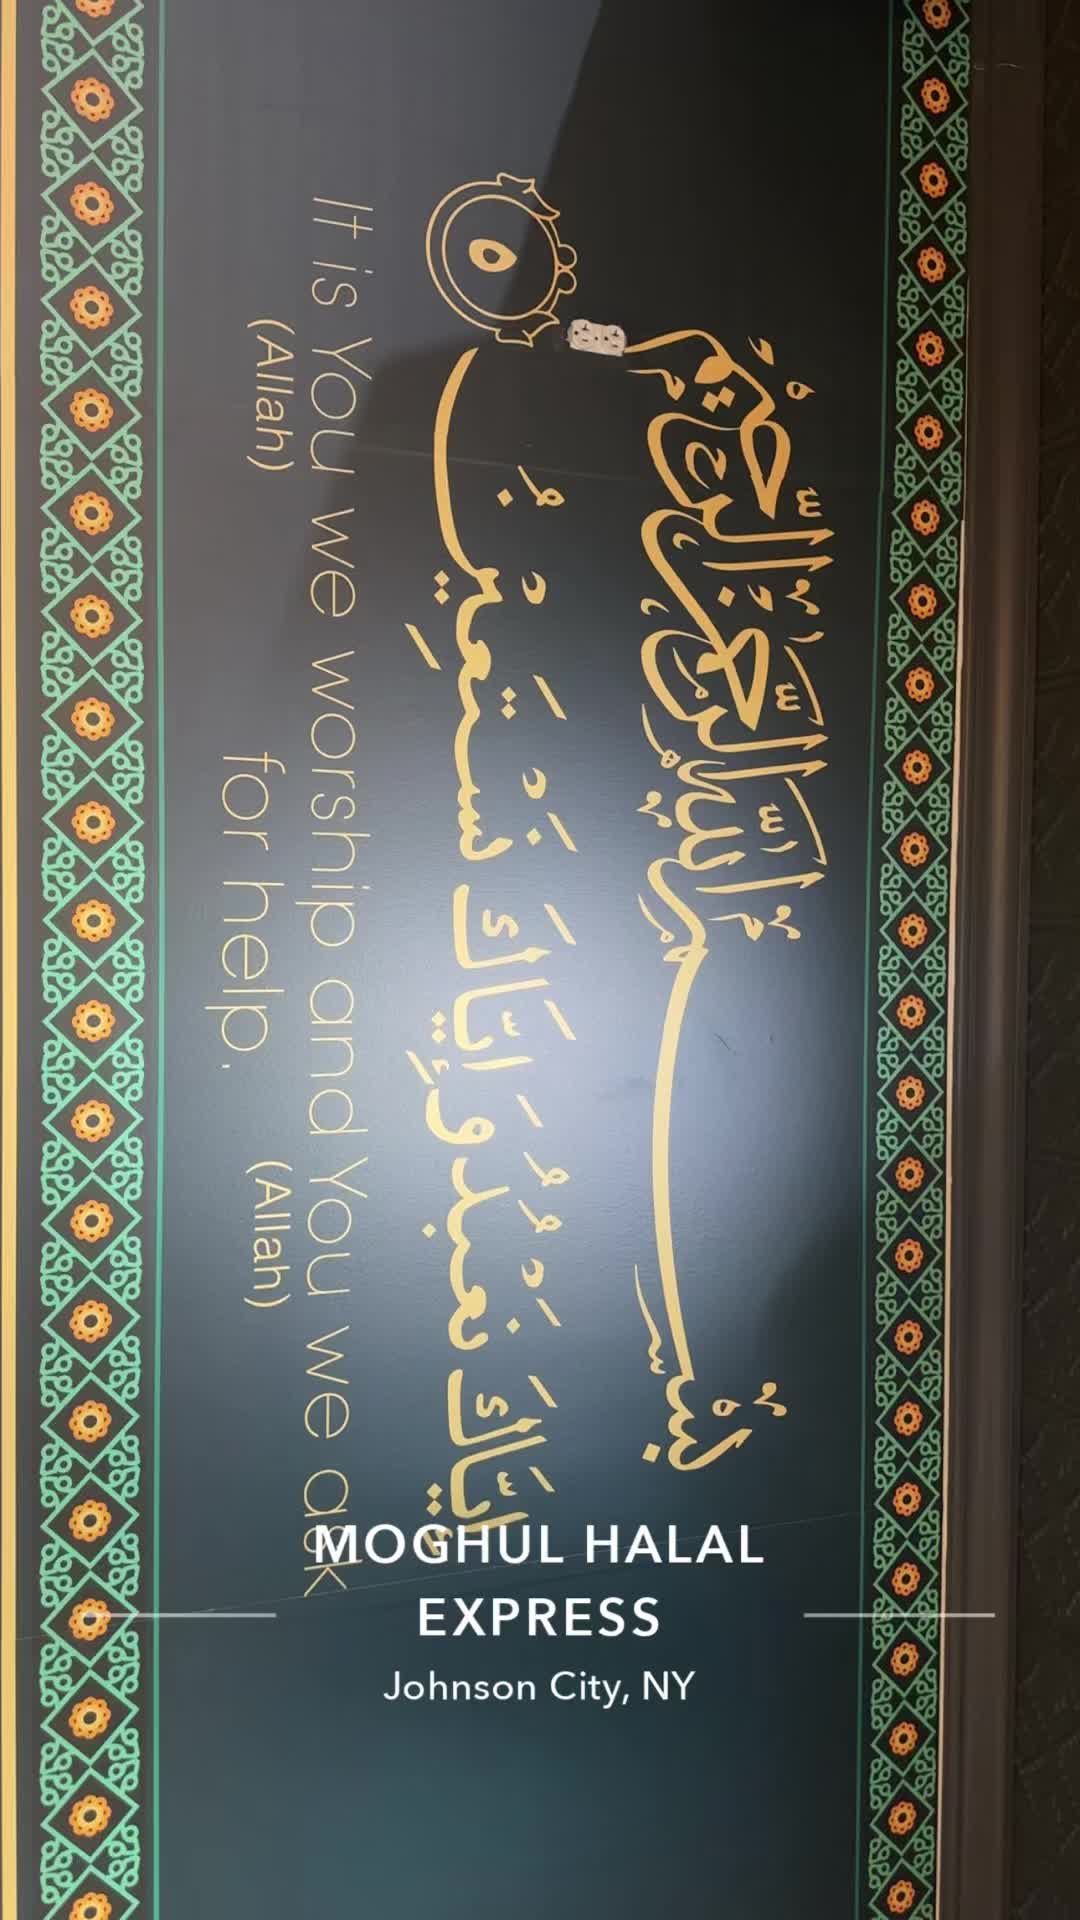 بِسْمِ اللَّهِ الرَّحْمَٰنِ الرَّحِيمِ
إِيَّاكَ نَعْبُدُ وَإِيَّاكَ نَسْتَعِينُ ٥
It is You we worship and You we ask
(Allah) (Allah)
for help.
MOGHUL HALAL
EXPRESS
Johnson City, NY